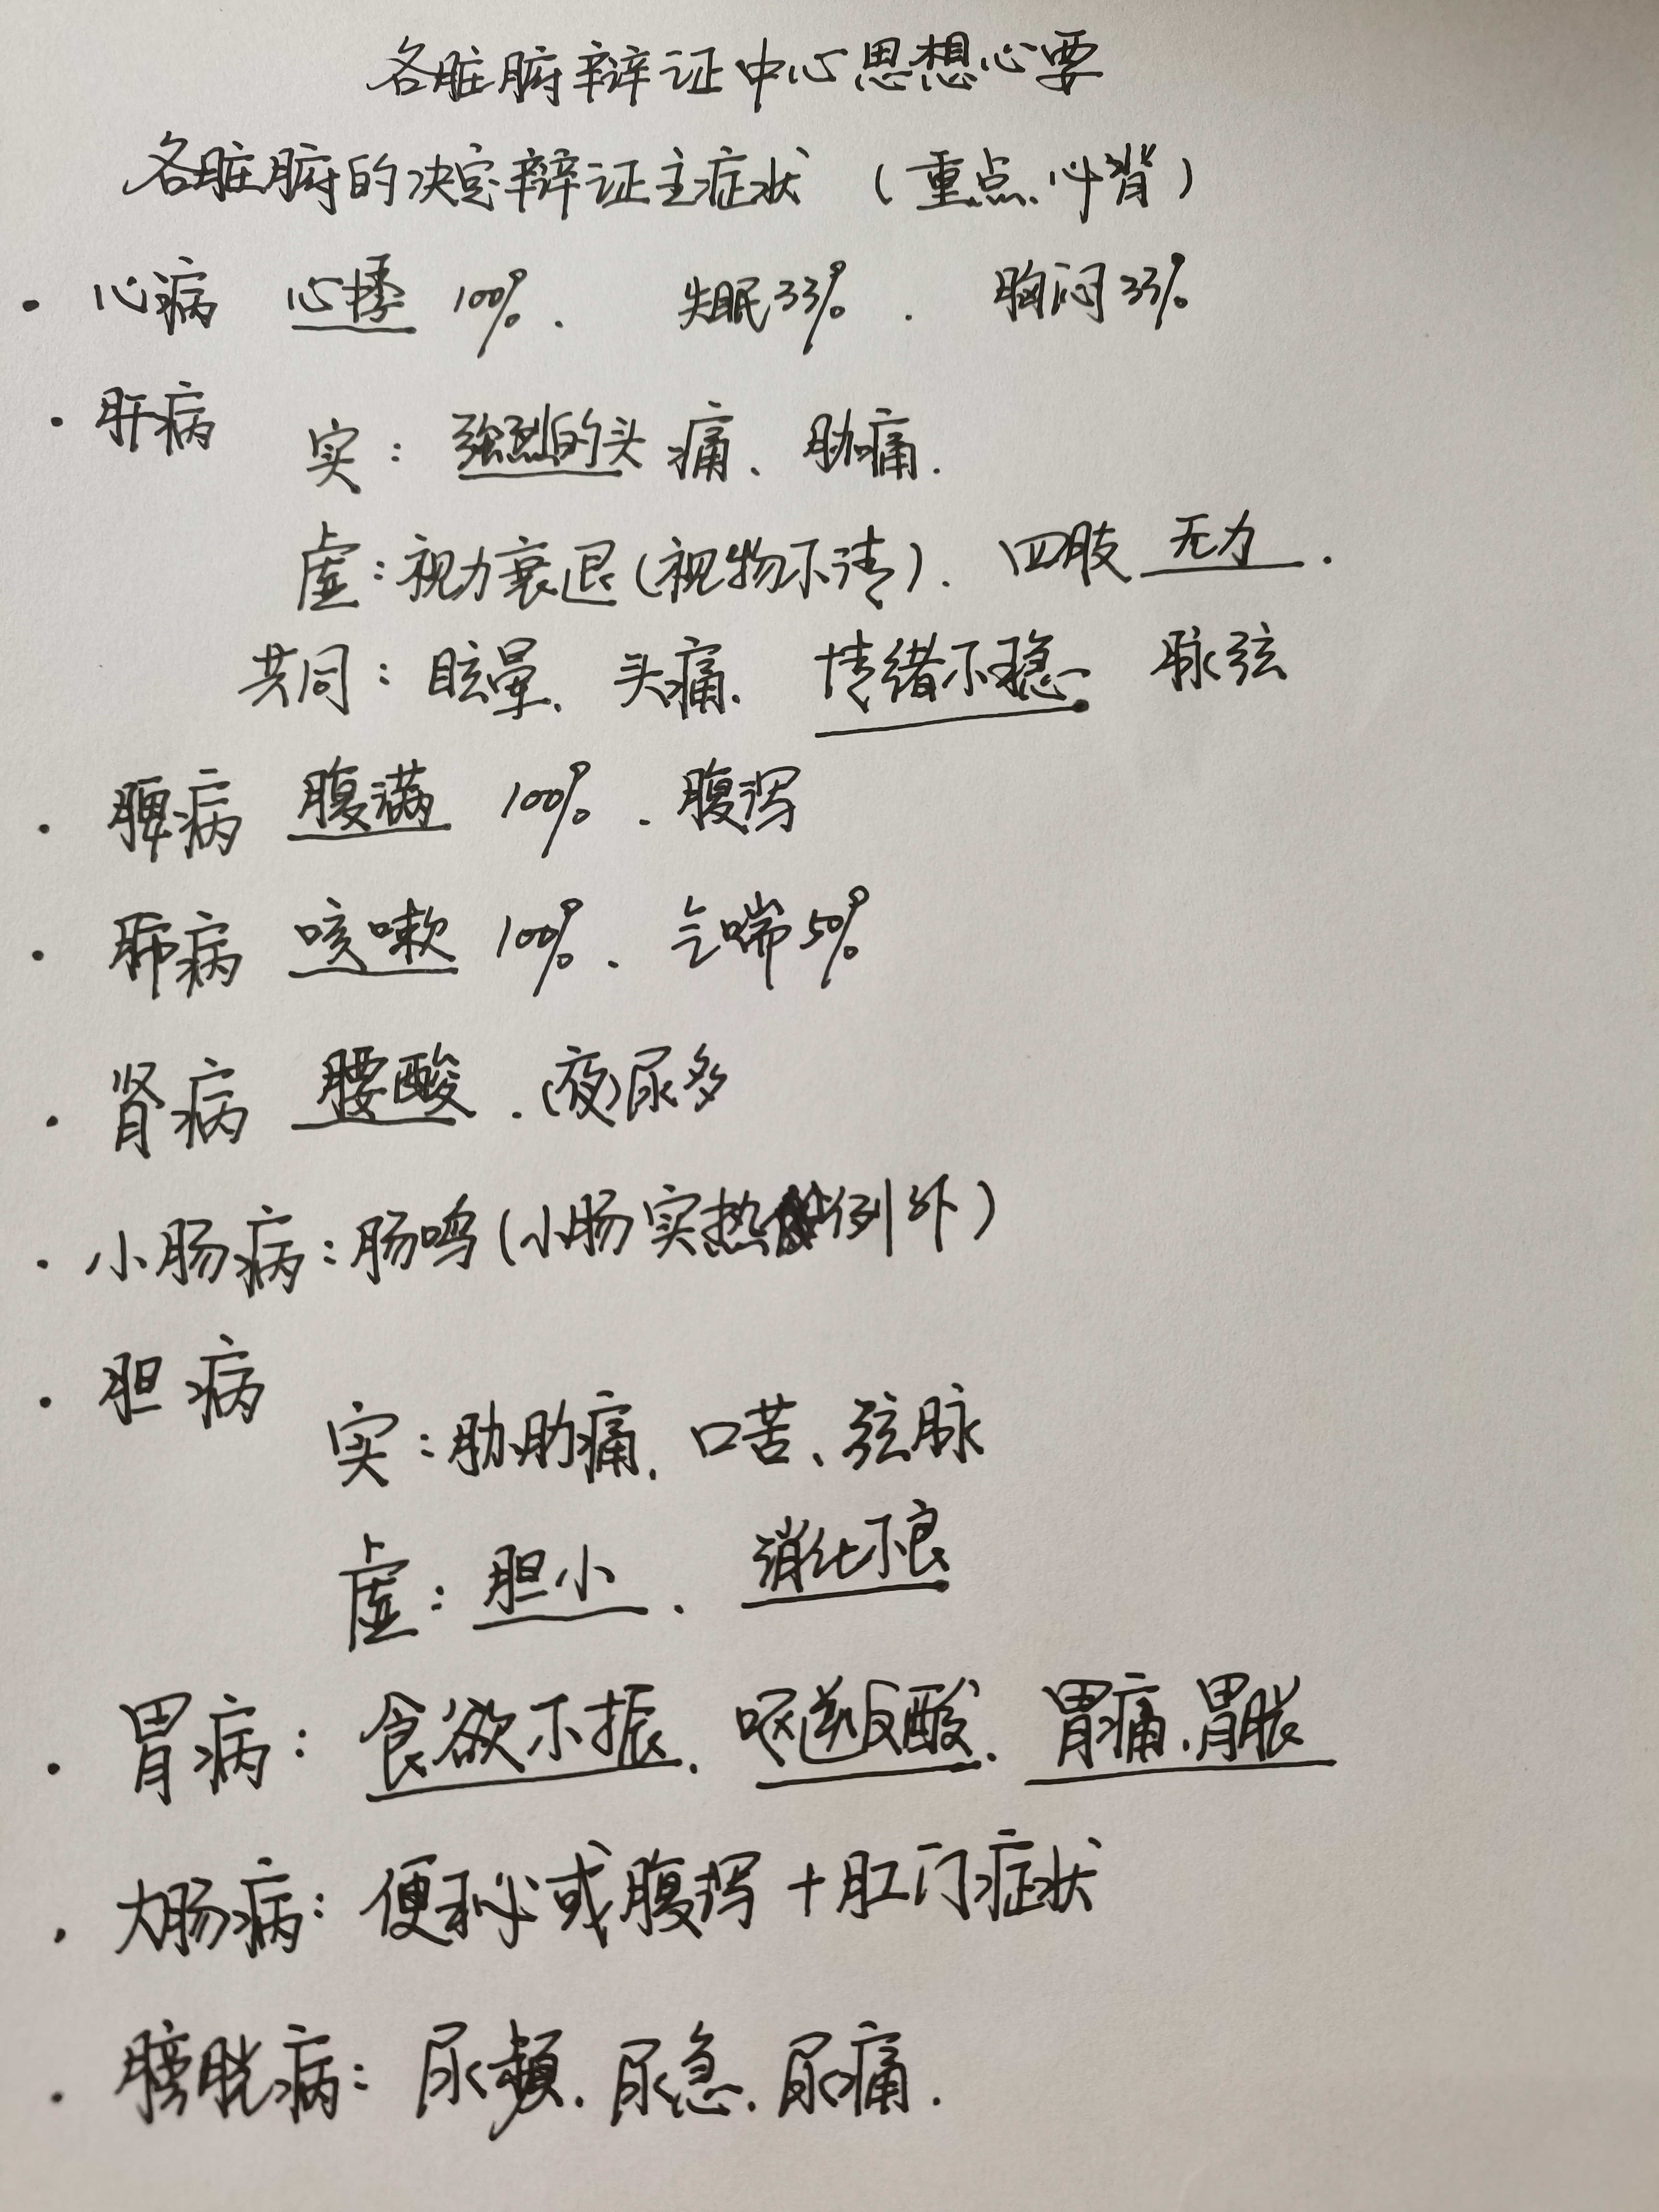 各脏腑辩证中心思想心要
各脏腑的决定辩证主症状 (重点、必背)
· 心病 心悸 100%. 失眠33%. 胸闷33%
· 肝病
实: 强烈的头痛、胁痛.
虚: 视力衰退(视物不清). 四肢无力.
共同: 眩晕、头痛. 情绪不稳、脉弦
· 脾病 腹满 100%. 腹泻
· 肺病 咳嗽 100%. 气喘50%
· 肾病 腰酸. (夜)尿多
· 小肠病: 肠鸣(小肠实热例外)
· 胆病
实: 肋肋痛、口苦、弦脉
虚: 胆小. 消化不良
· 胃病: 食欲不振. 呕逆反酸. 胃痛、胃胀
· 大肠病: 便秘或腹泻+肛门症状
· 膀胱病: 尿频. 尿急. 尿痛.